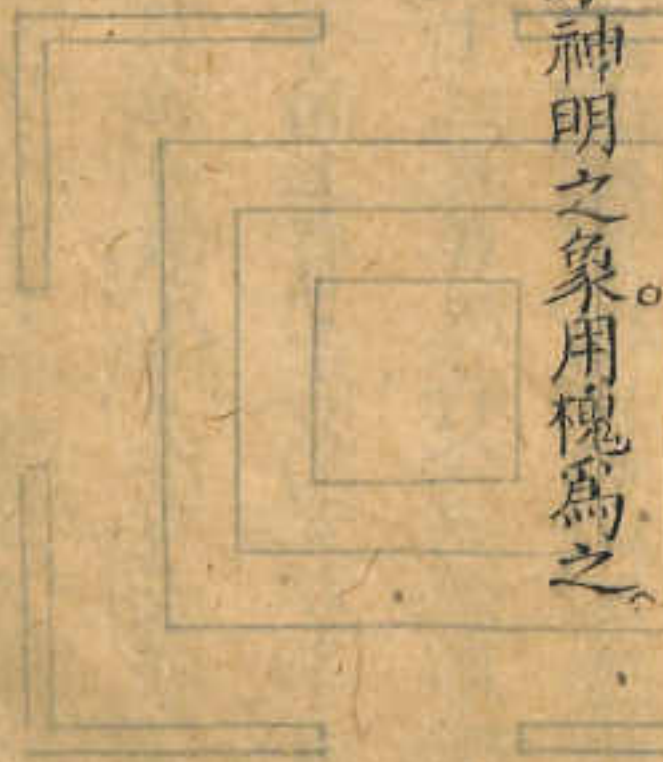 神明之象。用槐爲之。